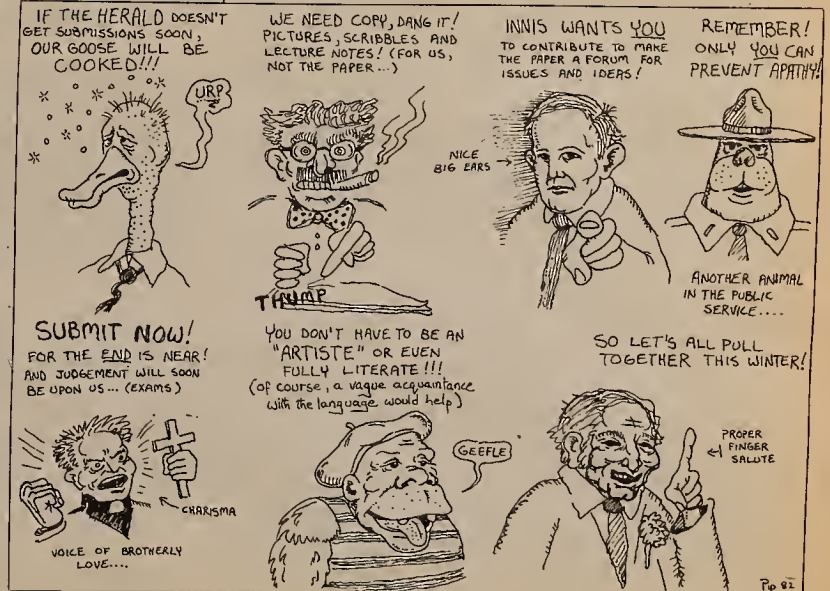 IF THE HERALD DOESN'T
GET SUBMISSIONS SOON,
OUR GOOSE WILL BE
COOKED!!!
URP
WE NEED COPY, DANG IT!
PICTURES, SCRIBBLES AND
LECTURE NOTES! (FOR US,
NOT THE PAPER...)
THUMP
INNIS WANTS YOU
TO CONTRIBUTE TO MAKE
THE PAPER A FORUM FOR
ISSUES AND IDEAS!
NICE
BIG EARS
REMEMBER!
ONLY YOU CAN
PREVENT APATHY!
ANOTHER ANIMAL
IN THE PUBLIC
SERVICE....
SUBMIT NOW!
FOR THE END IS NEAR!
AND JUDGEMENT WILL SOON
BE UPON US... (EXAMS)
CHARISMA
VOICE OF BROTHERLY
LOVE....
YOU DON'T HAVE TO BE AN
"ARTISTE" OR EVEN
FULLY LITERATE!!!
(of course, a vague acquaintance
with the language would help)
GEEFLE
SO LET'S ALL PULL
TOGETHER THIS WINTER!
PROPER
FINGER
SALUTE
Pip 82